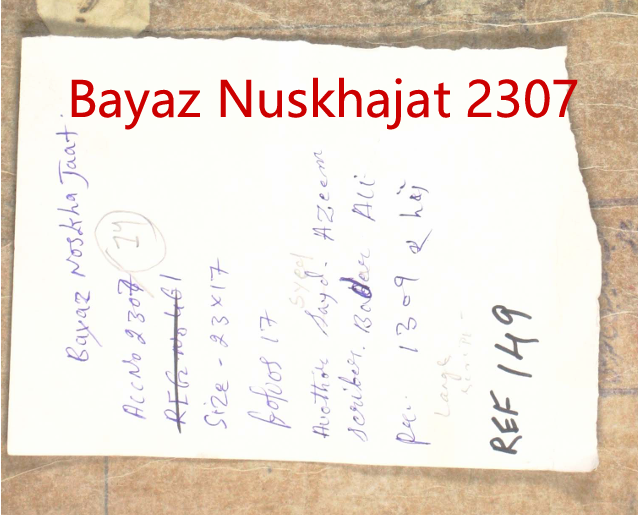 Bayaz Nuskhajat 2307
Bayaz Noskha Jaat.
AccNo 2307
14
REG No 461
Size - 23x17
folios 17
Syed
Authior Sayd. Azeem
scriber. Badar Ali
1309 
Large
REF 149